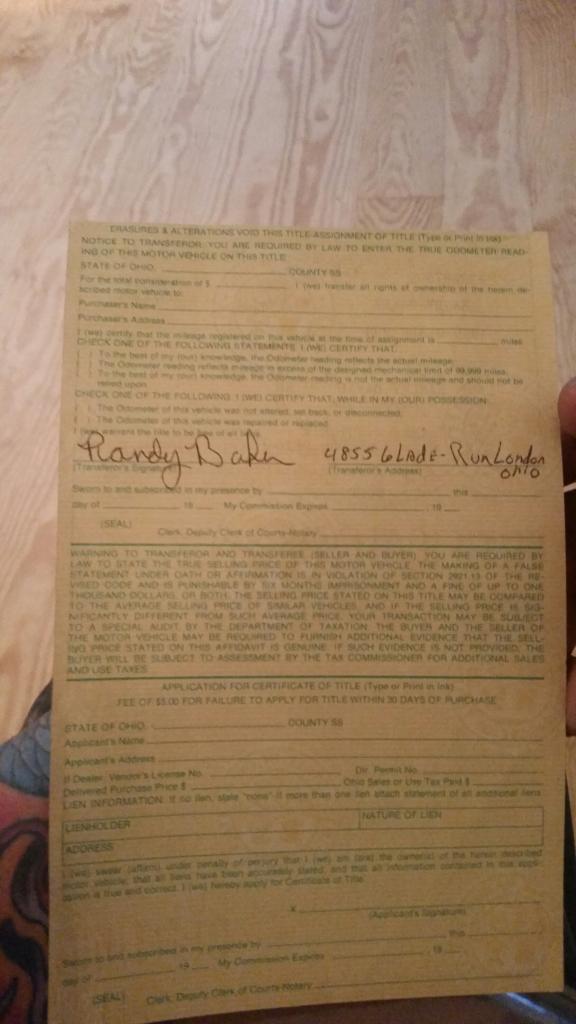 ERASURES & ALTERATIONS VOID THIS TITLE-ASSIGNMENT OF TITLE (Type or Print in Ink)
NOTICE TO TRANSFEROR: YOU ARE REQUIRED BY LAW TO ENTER THE TRUE ODOMETER READ-
ING OF THIS MOTOR VEHICLE ON THIS TITLE
STATE OF OHIO, COUNTY SS
For the total consideration of $ I (we) transfer all rights of ownership of the herein de-
scribed motor vehicle to:
Purchaser's Name
Purchaser's Address
I (we) certify that the mileage registered on this vehicle at the time of assignment is miles
CHECK ONE OF THE FOLLOWING STATEMENTS. I (WE) CERTIFY THAT:
( ) To the best of my (our) knowledge, the Odometer reading reflects the actual mileage.
( ) The Odometer reading reflects mileage in excess of the designed mechanical limit of 99,999 miles.
( ) To the best of my (our) knowledge, the Odometer reading is not the actual mileage and should not be
relied upon.
CHECK ONE OF THE FOLLOWING: I (WE) CERTIFY THAT, WHILE IN MY (OUR) POSSESSION:
( ) The Odometer of this vehicle was not altered, set back, or disconnected.
( ) The Odometer of this vehicle was repaired or replaced.
I (we) warrant the title to be free of all
Randy Baker 4855 Glade-Run London
Ohio
(Transferor's Signature) (Transferor's Address)
Sworn to and subscribed in my presence by this
day of 19 My Commission Expires , 19
(SEAL)
Clerk, Deputy Clerk of Courts-Notary
WARNING TO TRANSFEROR AND TRANSFEREE (SELLER AND BUYER). YOU ARE REQUIRED BY
LAW TO STATE THE TRUE SELLING PRICE OF THIS MOTOR VEHICLE. THE MAKING OF A FALSE
STATEMENT UNDER OATH OR AFFIRMATION IS IN VIOLATION OF SECTION 2921.13 OF THE RE-
VISED CODE AND IS PUNISHABLE BY SIX MONTHS IMPRISONMENT AND A FINE OF UP TO ONE
THOUSAND DOLLARS, OR BOTH. THE SELLING PRICE STATED ON THIS TITLE MAY BE COMPARED
TO THE AVERAGE SELLING PRICE OF SIMILAR VEHICLES, AND IF THE SELLING PRICE IS SIG-
NIFICANTLY DIFFERENT FROM SUCH AVERAGE PRICE, YOUR TRANSACTION MAY BE SUBJECT
TO A SPECIAL AUDIT BY THE DEPARTMENT OF TAXATION. THE BUYER AND THE SELLER OF
THE MOTOR VEHICLE MAY BE REQUIRED TO FURNISH ADDITIONAL EVIDENCE THAT THE SELL-
ING PRICE STATED ON THIS AFFIDAVIT IS GENUINE. IF SUCH EVIDENCE IS NOT PROVIDED, THE
BUYER WILL BE SUBJECT TO ASSESSMENT BY THE TAX COMMISSIONER FOR ADDITIONAL SALES
AND USE TAXES.
APPLICATION FOR CERTIFICATE OF TITLE (Type or Print in Ink)
FEE OF $5.00 FOR FAILURE TO APPLY FOR TITLE WITHIN 30 DAYS OF PURCHASE
STATE OF OHIO, COUNTY SS
Applicant's Name
Applicant's Address
If Dealer: Vendor's License No. Dlr. Permit No.
Delivered Purchase Price $ Ohio Sales or Use Tax Paid $
LIEN INFORMATION: If no lien, state "none" If more than one lien attach statement of all additional liens
LIENHOLDER NATURE OF LIEN
ADDRESS
I (we) swear (affirm) under penalty of perjury that I (we) am (are) the owner(s) of the herein described
motor vehicle; that all liens have been accurately stated, and that all information contained in this appli-
cation is true and correct. I (we) hereby apply for Certificate of Title.
X
(Applicant's Signature)
Sworn to and subscribed in my presence by this
day of 19 My Commission Expires , 19
(SEAL) Clerk, Deputy Clerk of Courts-Notary